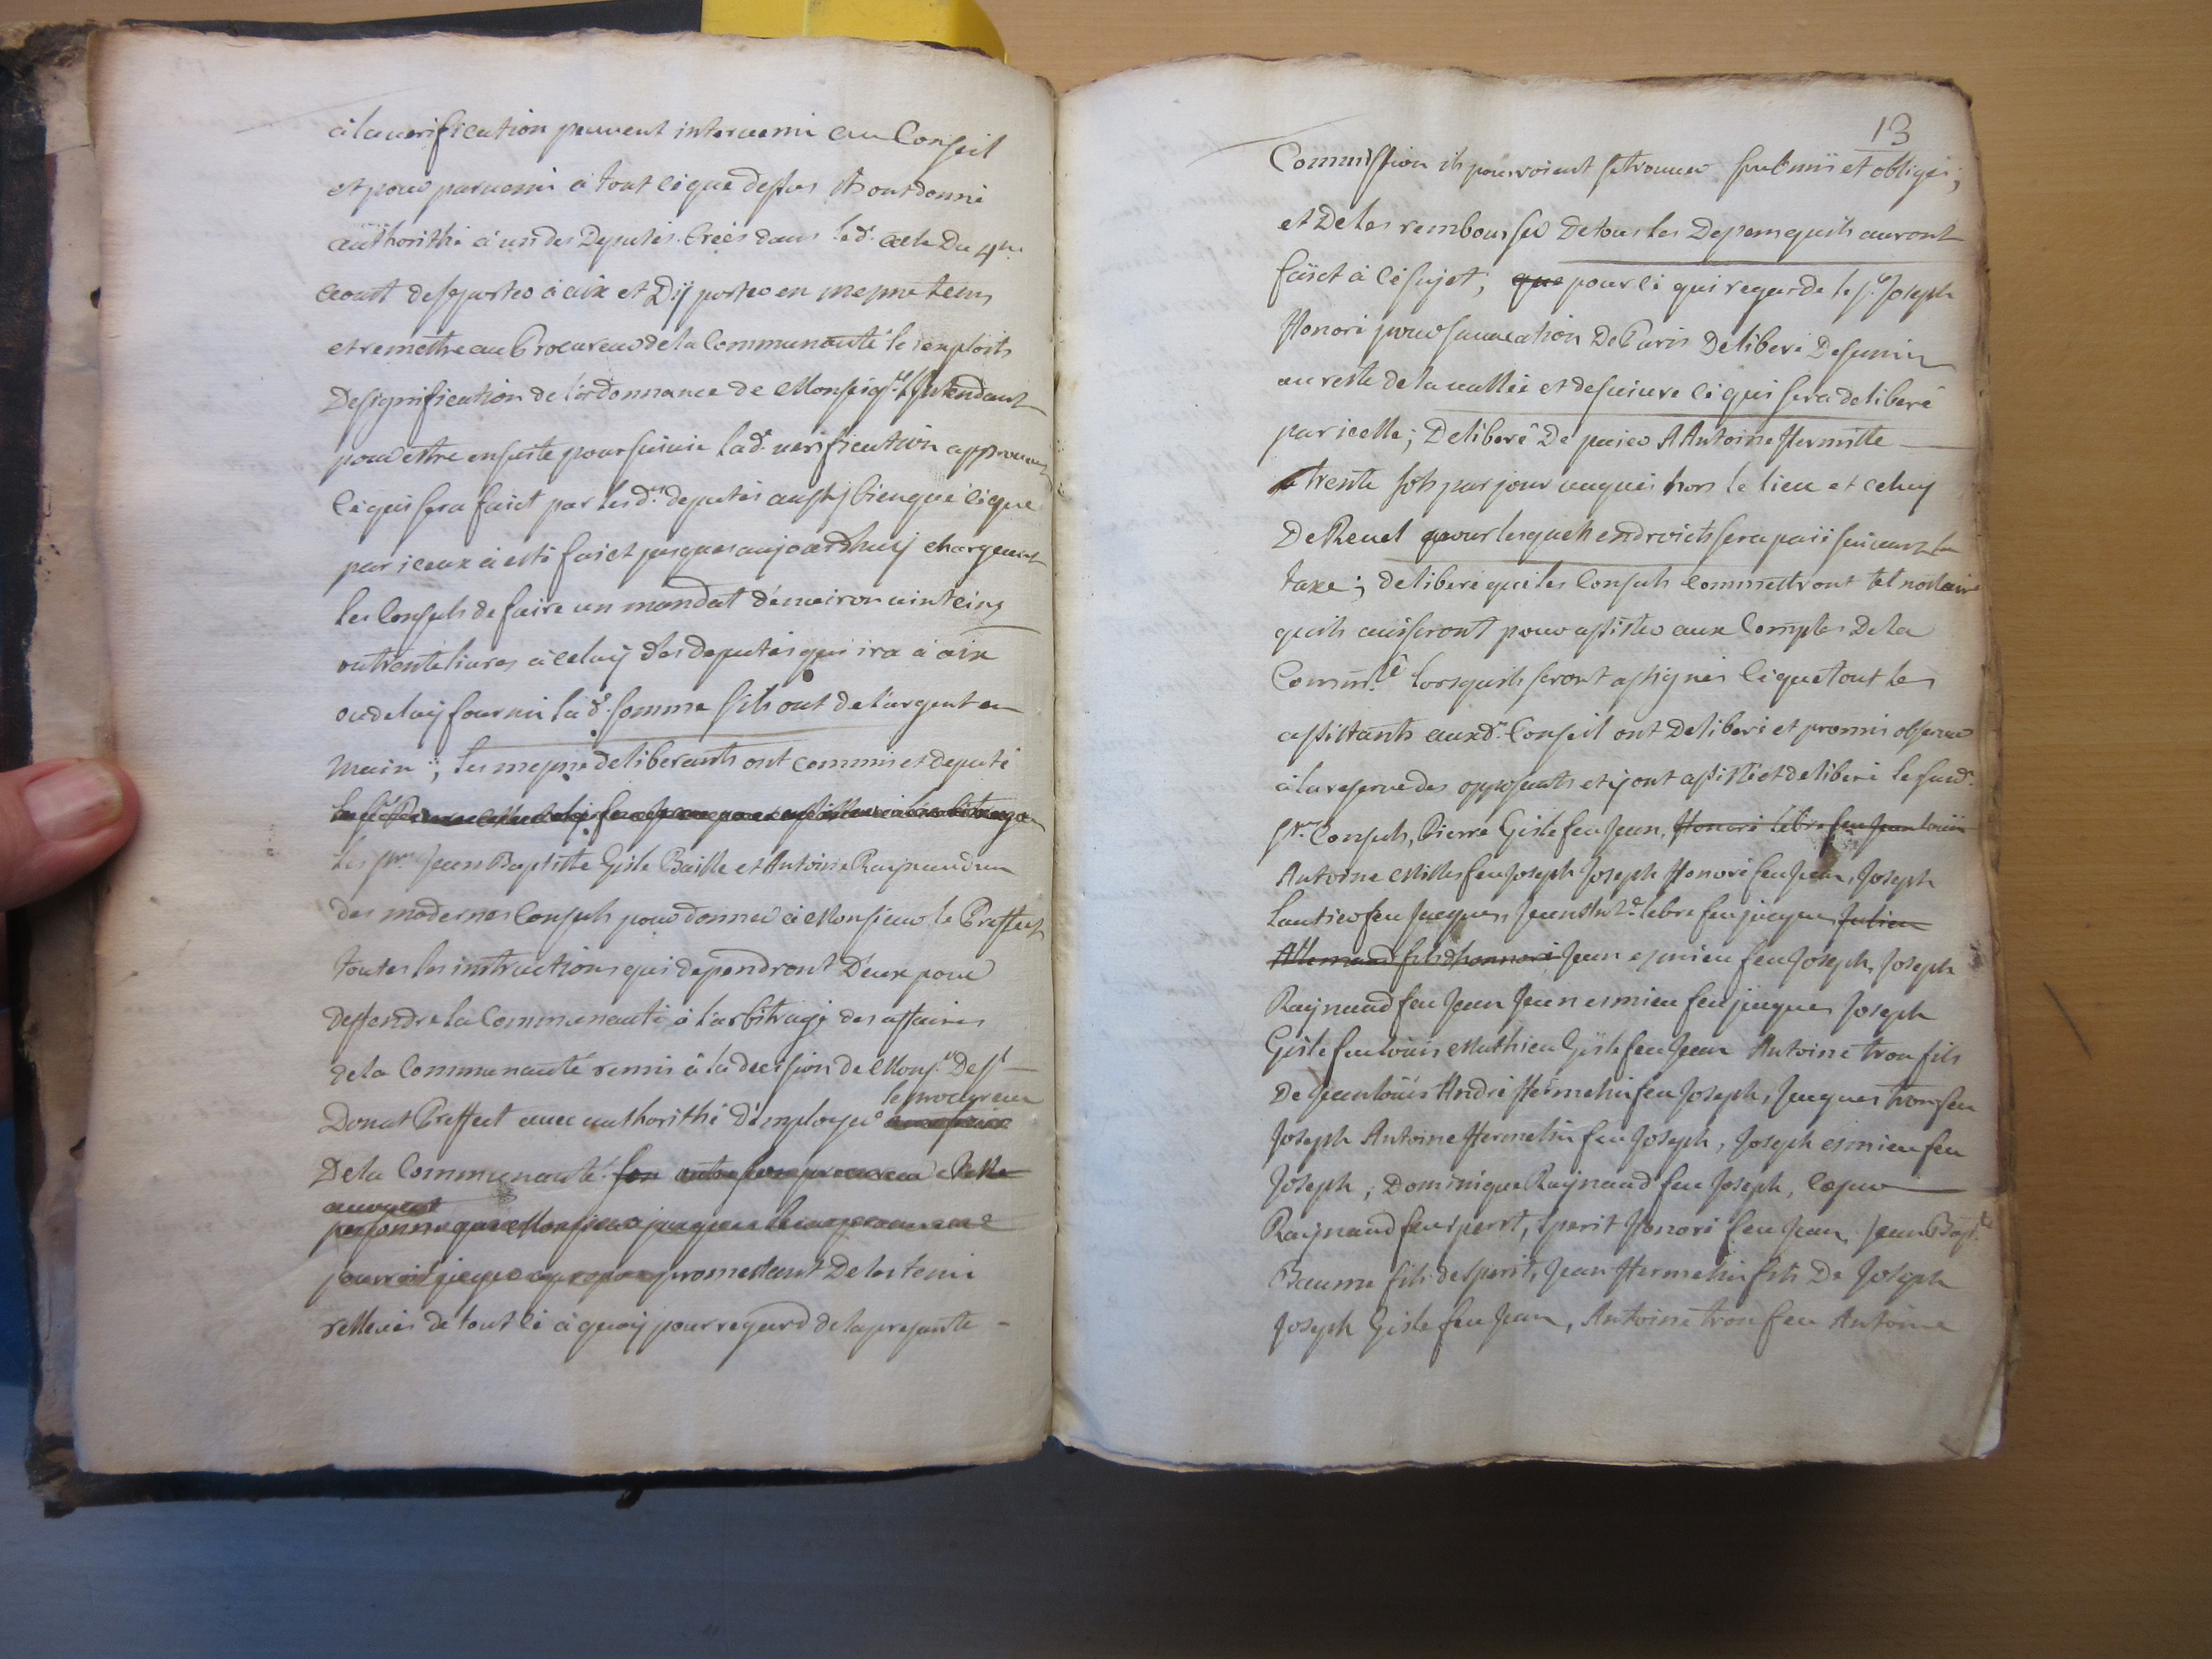 à la verification peuvent intervenir au Conseil
et pour parvenir à tout ce que dessus ils ont donné
authorithé à un des Deputés Créés dans led. acte Du 4me
aoust de se porter à aix et D'ÿ porter en mepme tems
et remettre au Procureur de la Communauté le exploits
De signification de l'ordonnance de Monseigr. l'Intendant
pour estre ensuite poursuivie lad. verification approuvant
ce qui sera faict par lesd. deputés aussy bien que ce que
par iceux a esté faict jusques aujourdhuy chargeant
les Consuls de faire un mandat d'environ vint cinq
ou trente livres à celuy des deputés qui ira à aix
ou de luy fournir lad. somme sils ont de l'argent en
main ; les mepme deliberants ont commis et deputé
les srs. Jean Baptiste Giste Baille et Antoine Raynaud un
des modernes Consuls pour donner à Monsieur le Preffect
toutes les instructions qui dependront D'eux pour
deffendre la Communauté à l'arbitrage des affaires
de la Communauté remis à la decision de Monsr. De St
le procureur
Donat Preffect avec authorithé d'employer
De la Communauté
promettant De les tenir
rellevés de tout ce à quoy pour regard de la presante
13
Commission ils pourroient se trouver soubmis et obligés ;
et De les rembourser De tous les Depens quils auront
faict à ce sujet ; que pour ce qui regarde le sr. Joseph
Honoré pour sa vacation De Paris Deliberé De s'unir
au reste de la vallée et de suivre ce qui sera deliberé
par icelle ; Deliberé De paier A Antoine Hermitte
trente sols par jour vaqués hors le lieu et celuy
De Revel pour lesquels endroicts sera paié suivant la
taxe ; deliberé que les Consuls Commettront tel nottaire
quils aviseront pour assister aux Comptes De la
Commté. lorsquils seront assignés ce que tout les
assistants aud. Conseil ont Deliberé et promis observer
à la reserve des opposants et y ont assisté et deliberé lesud.
srs. Consuls, Pierre Giste feu Jean, Honoré lebre feu Jean louis
Antoine Milles feu Joseph Joseph Honoré feu Jean, Joseph
Lautier feu Jacques, Jean Ande. lebre feu jacques Julien
Allemand fils d'honnoré Jean esmieu feu Joseph, Joseph
Raynaud feu Jean Jean esmieu feu jacques Joseph
Giste feu louis Mathieu Giste feu Jean Antoine tron fils
De Jean louis André Hermelin feu Joseph, Jacques tron feu
Joseph Antoine Hermelin feu Joseph, Joseph esmieu feu
Joseph, Dominique Raynaud feu Joseph,
Raynaud feu sperit, sperit Honoré feu Jean, Jean Bapte.
Baume fils de sperit, Jean Hermelin fils De Joseph
Joseph Giste feu Jean, Antoine tron feu Antoine